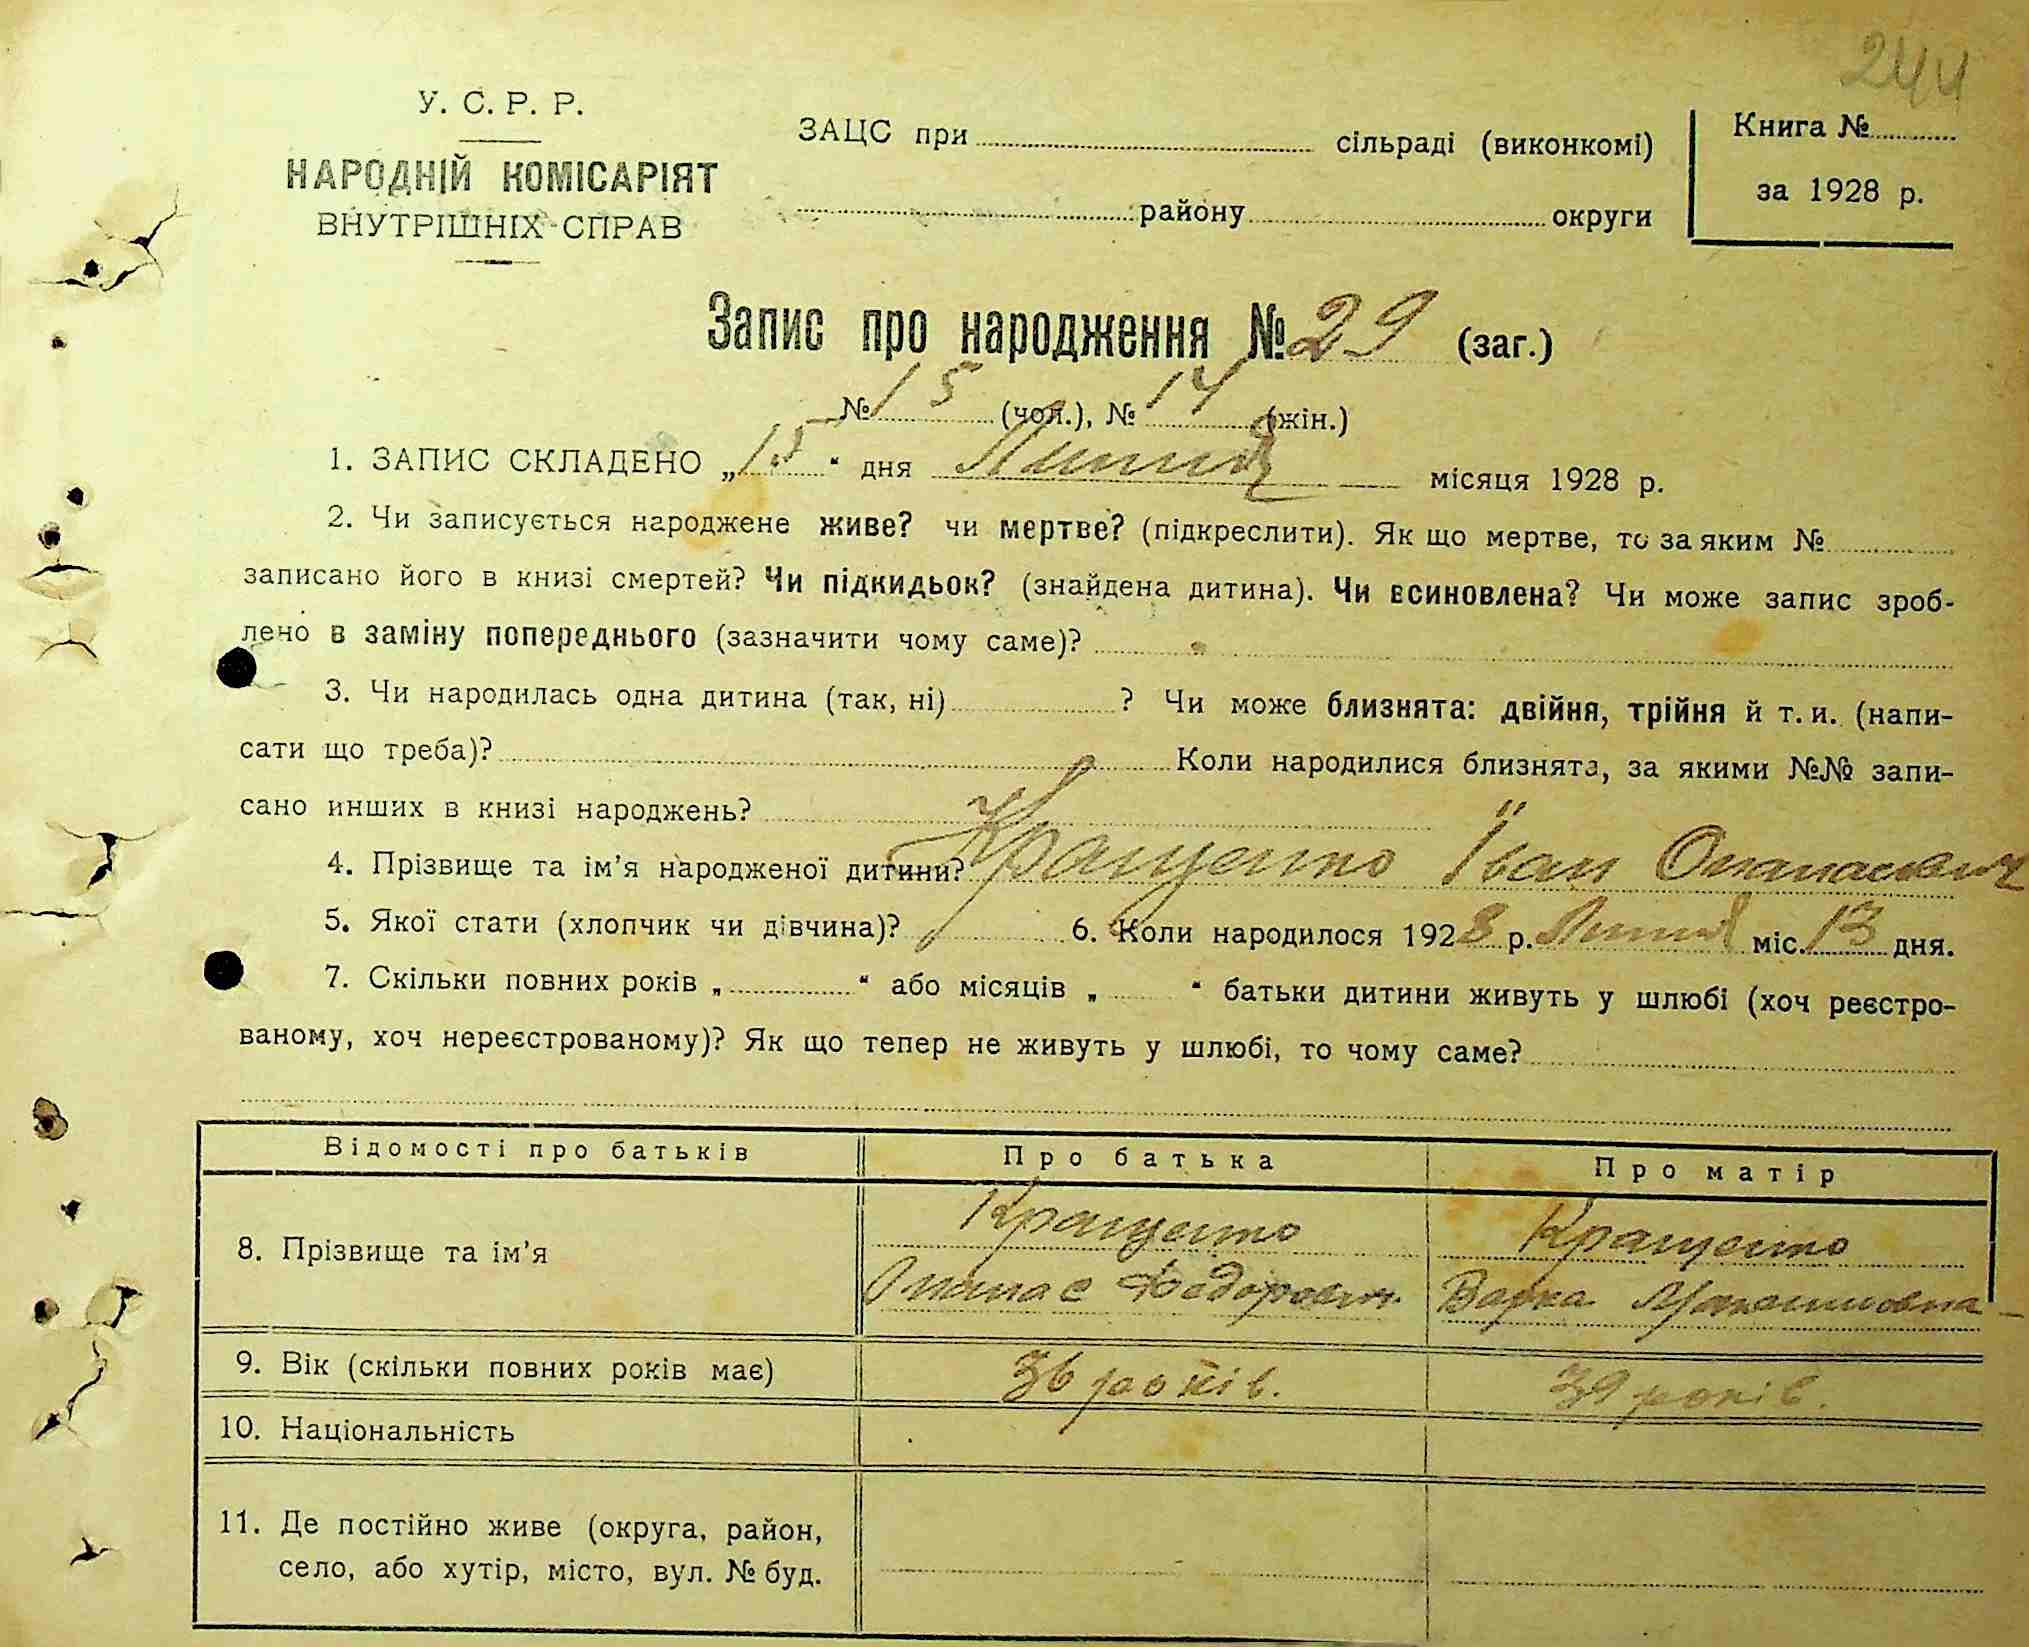 244
У. С. Р. Р.
НАРОДНІЙ КОМІСАРІЯТ
ВНУТРІШНІХ СПРАВ
ЗАЦС при сільраді (виконкомі)
району округи
Книга №
за 1928 р.
Запис про народження № 29 (заг.)
№ 15 (чол.), № 14 (жін.)
1. ЗАПИС СКЛАДЕНО „15“ дня Липня місяця 1928 р.
2. Чи записується народжене живе? чи мертве? (підкреслити). Як що мертве, то за яким №
записано його в книзі смертей? Чи підкидьок? (знайдена дитина). Чи всиновлена? Чи може запис зроб-
лено в заміну попереднього (зазначити чому саме)?
3. Чи народилась одна дитина (так, ні) ? Чи може близнята: двійня, трійня й т. и. (напи-
сати що треба)? Коли народилися близнята, за якими №№ запи-
сано инших в книзі народжень?
4. Прізвище та ім’я народженої дитини? Кращенко Іван Опанасович
5. Якої стати (хлопчик чи дівчина)? 6. Коли народилося 1928 р. Липня міс. 13 дня.
7. Скільки повних років „ “ або місяців „ “ батьки дитини живуть у шлюбі (хоч реєстро-
ваному, хоч нереєстрованому)? Як що тепер не живуть у шлюбі, то чому саме?
Відомості про батьків Про батька Про матір
8. Прізвище та ім’я
Кращенко
Опанас Федорович
Кращенко
Варка
9. Вік (скільки повних років має) 36 років. 39 років.
10. Національність
11. Де постійно живе (округа, район,
село, або хутір, місто, вул. № буд.